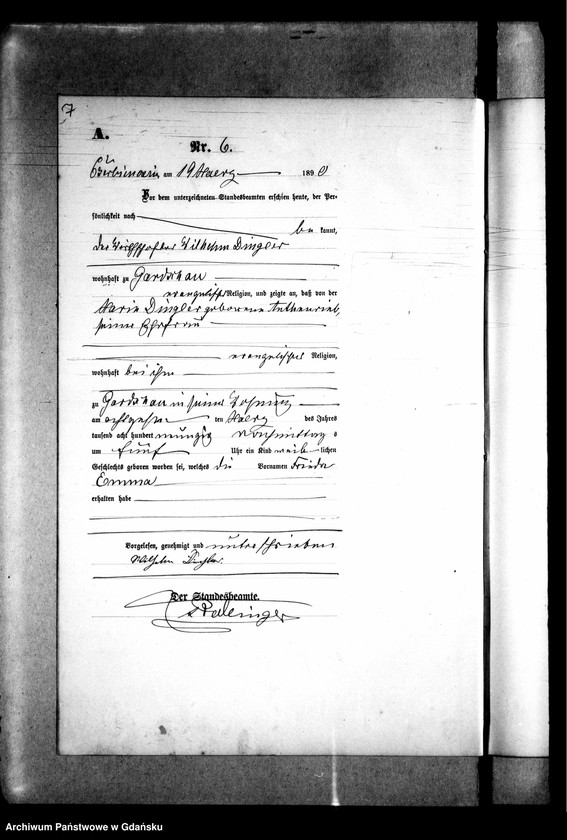 7
A.
Nr. 6.
am 19 Maerz 1890
Vor dem unterzeichneten Standesbeamten erschien heute, der Per-
sönlichkeit nach
be kannt,
der Wilhelm Dingler
wohnhaft zu Gardschau
evangelischer Religion, und zeigte an, daß von der
Marie Dingler geborene
seiner Ehefrau
evangelischer Religion,
wohnhaft bei ihm
zu Gardschau in seiner Wohnung
am achtzehn ten Maerz des Jahres
tausend acht hundert neunzig Nachmittag s
um fünf Uhr ein Kind weib lichen
Geschlechts geboren worden sei, welches die Vornamen Frieda
Emma
erhalten habe
Vorgelesen, genehmigt und unterschrieben
Wilhelm Dingler.
Der Standesbeamte.
Archiwum Państwowe w Gdańsku